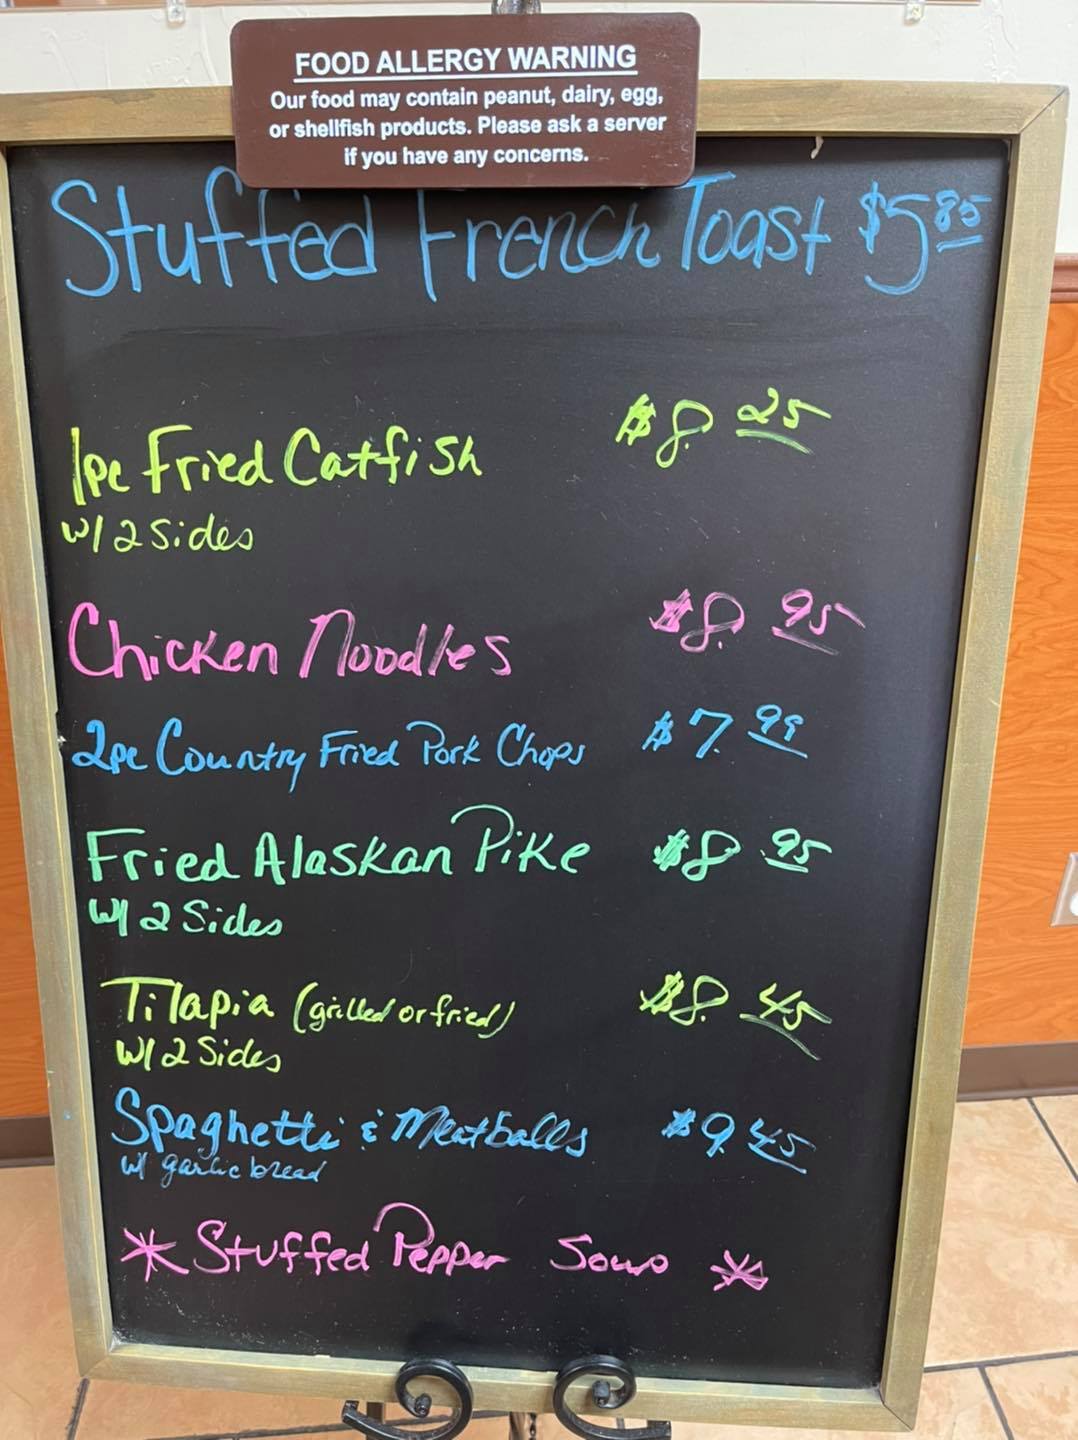 FOOD ALLERGY WARNING
Our food may contain peanut, dairy, egg,
or shellfish products. Please ask a server
if you have any concerns.
Stuffed French Toast $5 85
1pc Fried Catfish $8. 25
w/ 2 Sides
Chicken Noodles $8. 95
2pc Country Fried Pork Chops $7. 99
Fried Alaskan Pike $8 95
w/ 2 Sides
Tilapia (grilled or fried) $8. 45
w/ 2 Sides
Spaghetti & Meatballs $9. 45
w/ garlic bread
* Stuffed Pepper Soup *